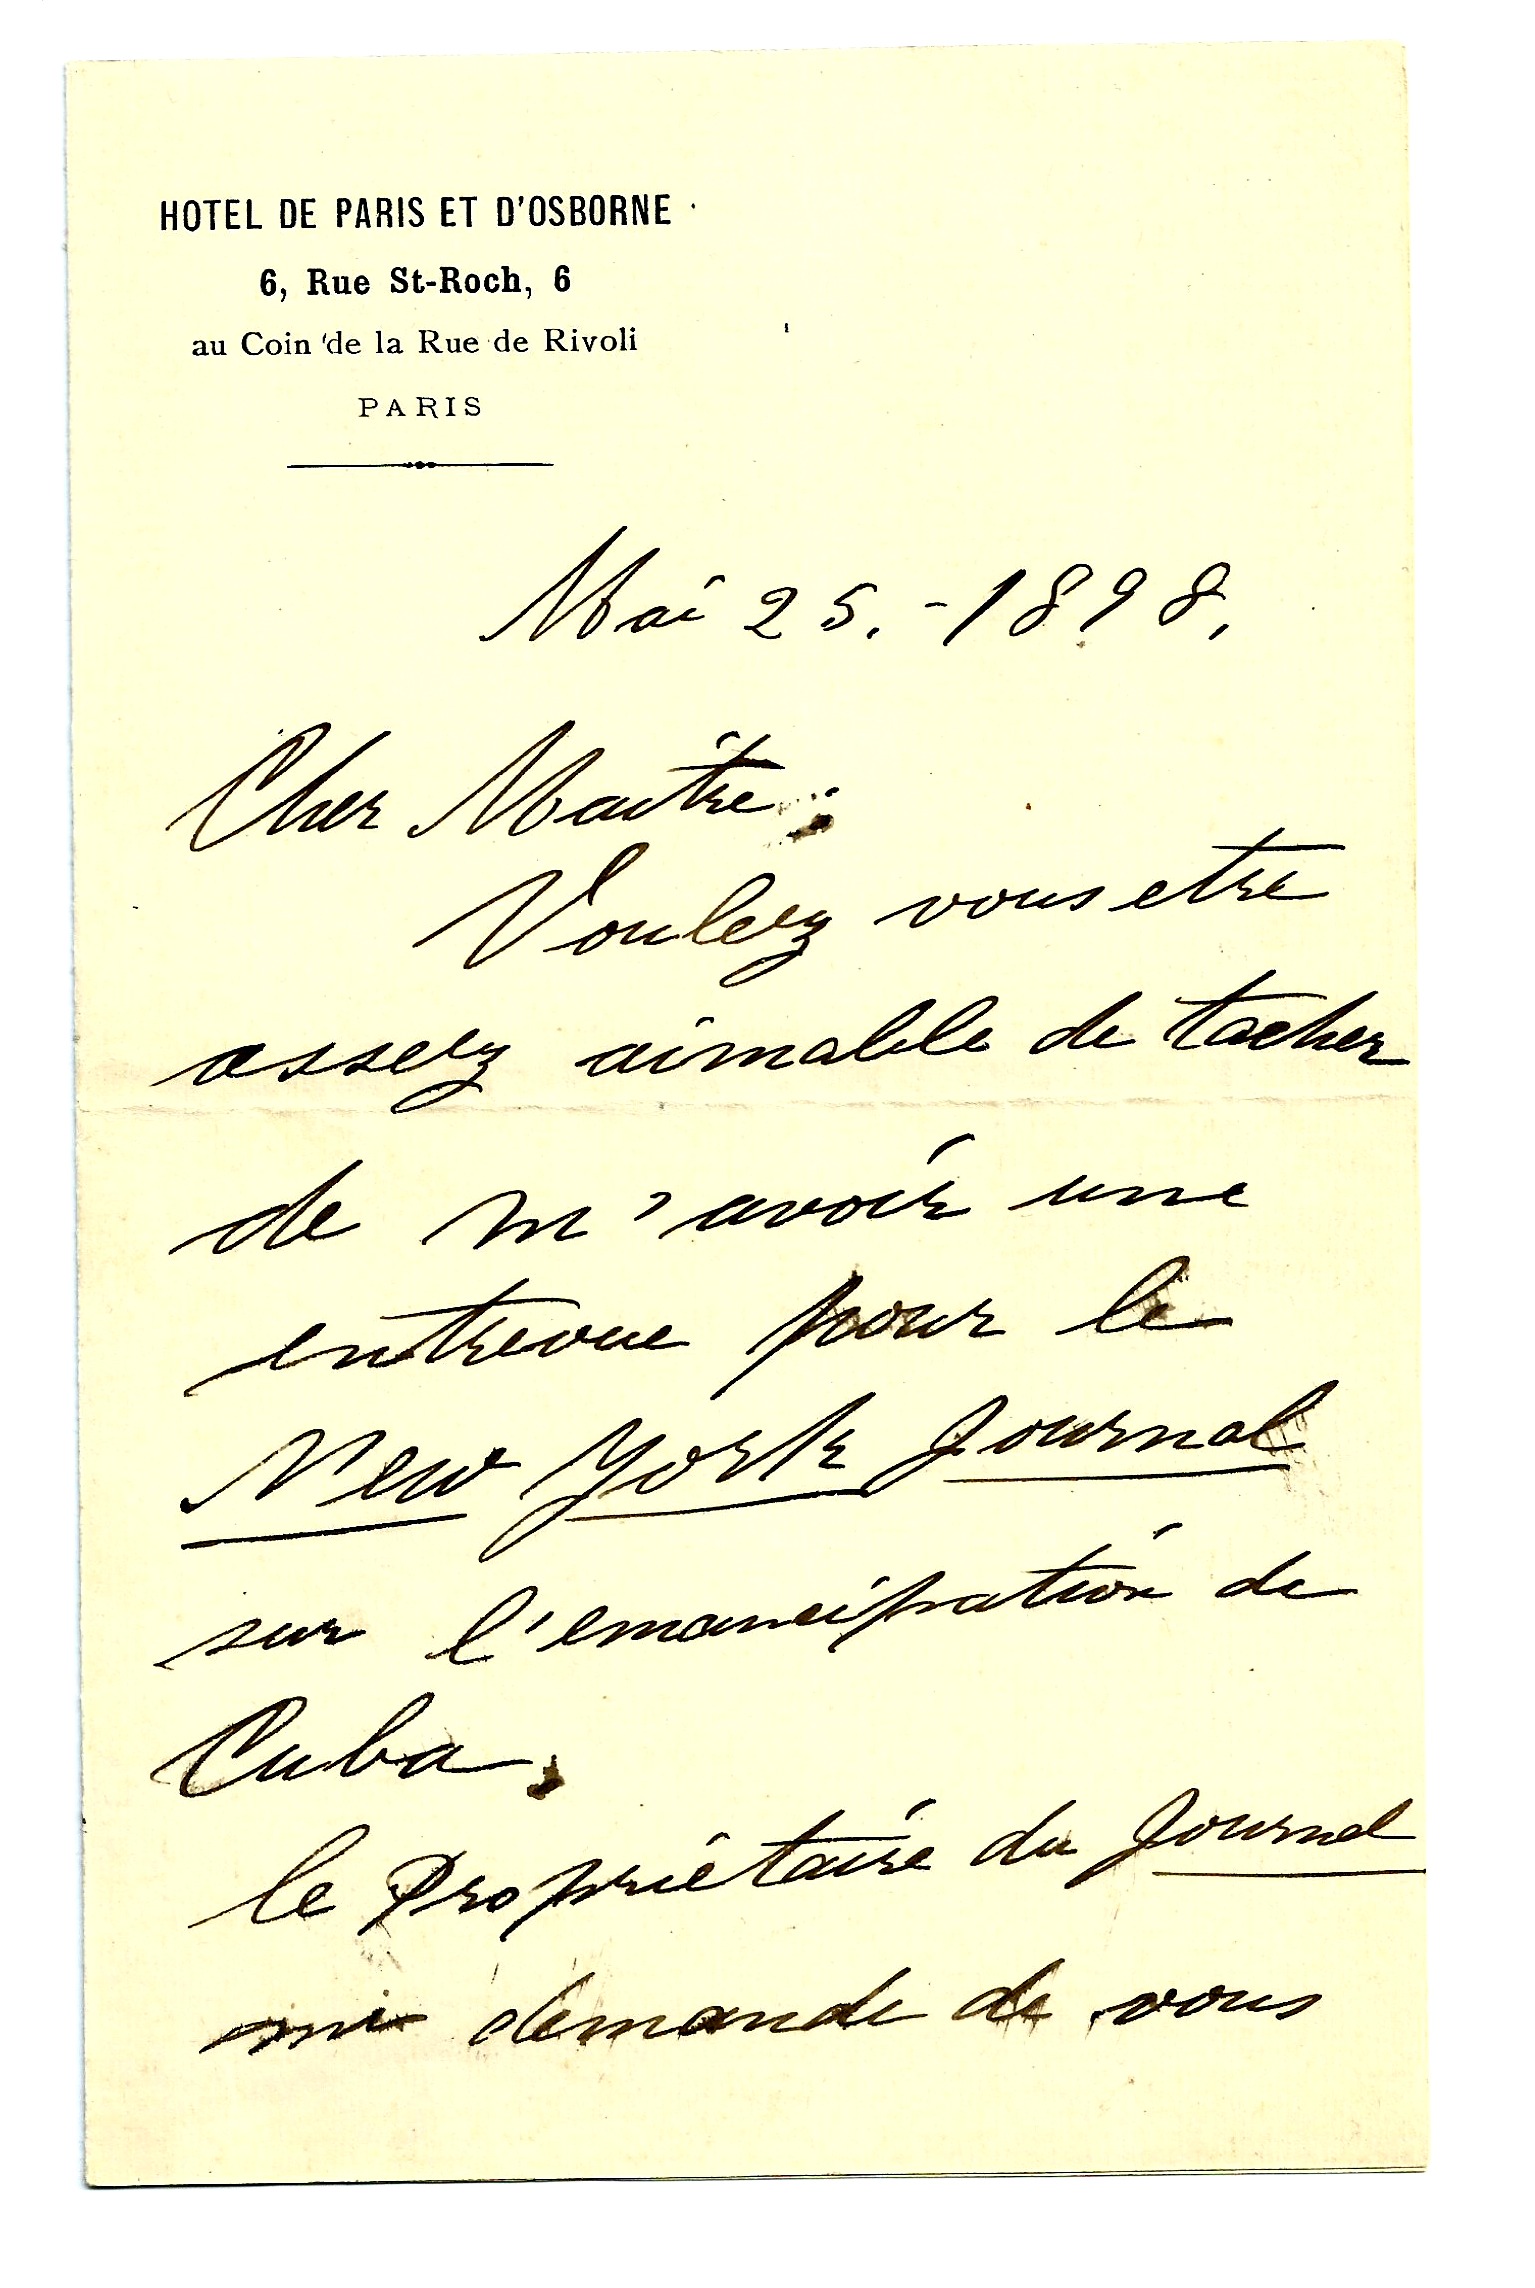 HOTEL DE PARIS ET D'OSBORNE
6, Rue St-Roch, 6
au Coin de la Rue de Rivoli
PARIS
Mai 25. - 1898.
Cher Maitre:
Voulez vous etre
assez aimable de tacher
de m'avoir une
entrevue pour le
New York Journal
sur l'emancipation de
Cuba.
le Propriétaire du Journal
me demande de vous